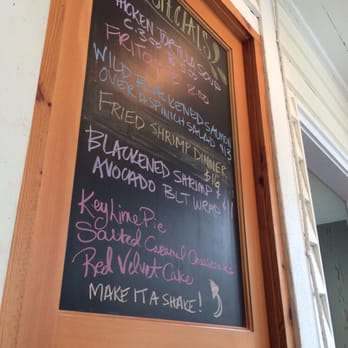 SPECIALS
CHICKEN TORTILLA SOUP
C 3.00
FRITO PIE 8.00
WILD BLACKENED SALMON
OVER A SPINICH SALAD $13
FRIED SHRIMP DINNER
$16
BLACKENED SHRIMP &
AVOCADO BLT WRAP $11
Key Lime Pie
Salted Caramel Cheesecake
Red Velvet Cake
MAKE IT A SHAKE!